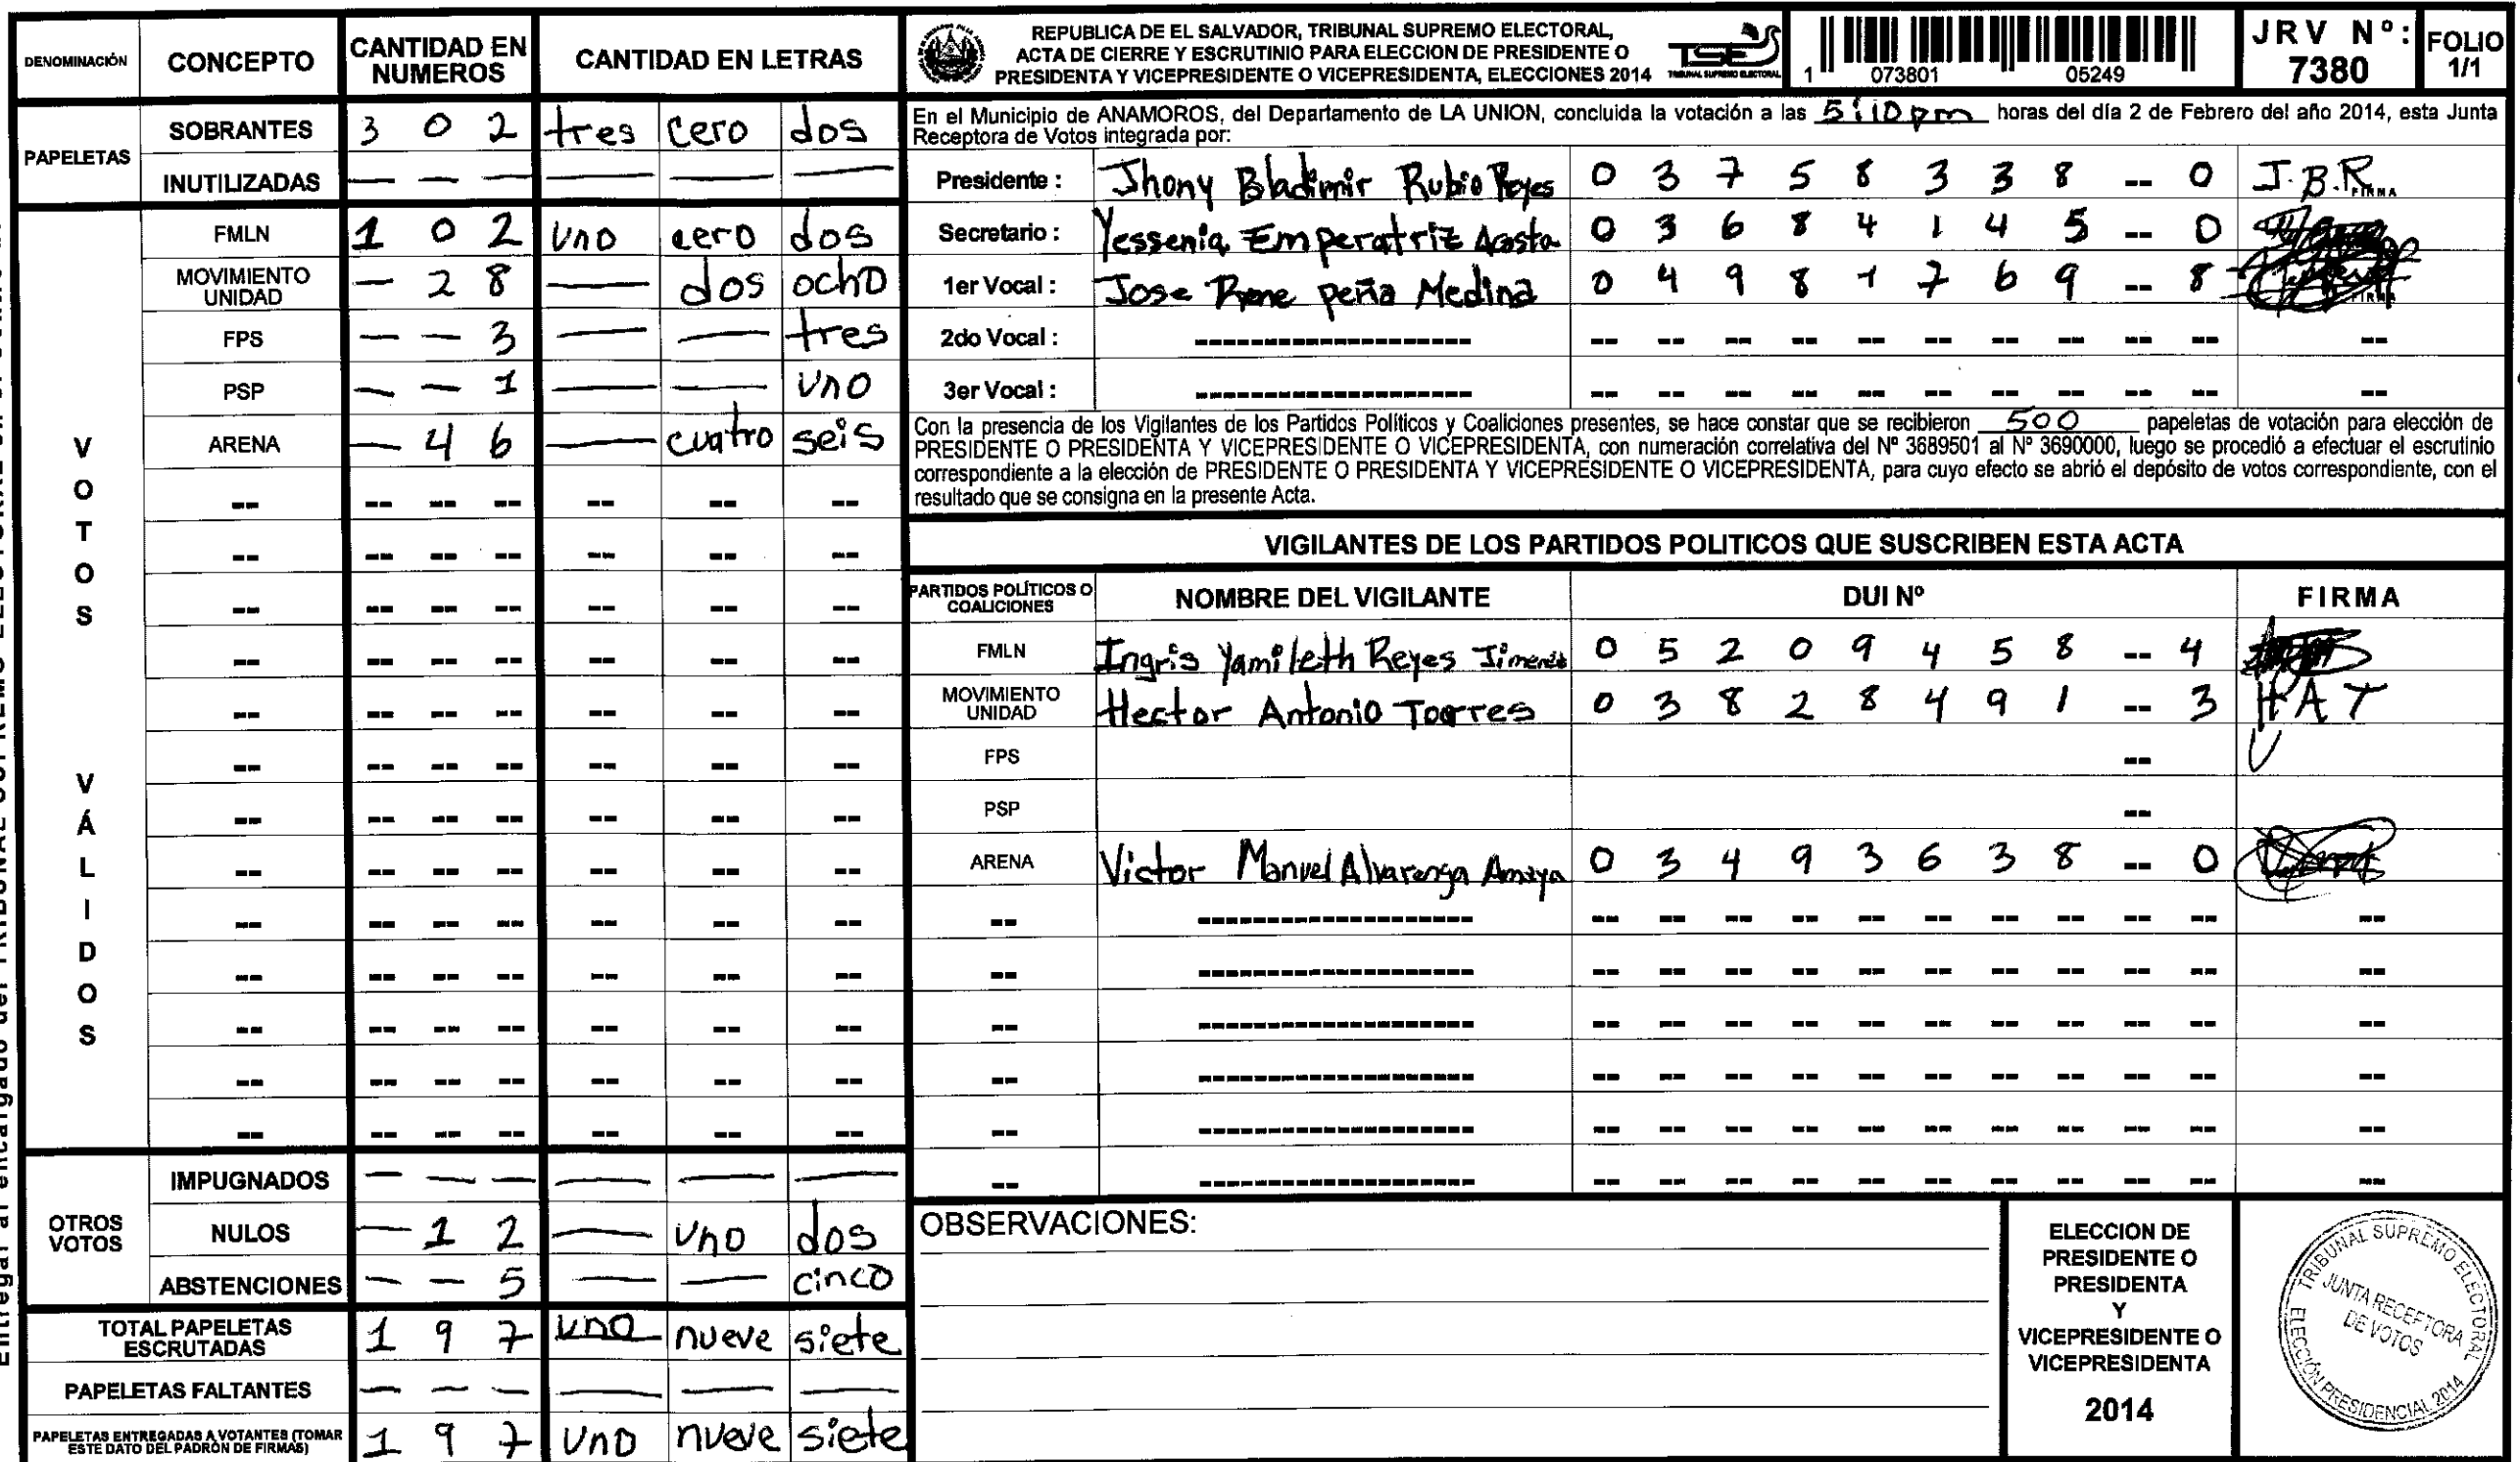 DENOMINACIÓN CONCEPTO CANTIDAD EN NUMEROS CANTIDAD EN LETRAS
PAPELETAS
SOBRANTES 3 0 2 tres cero dos
INUTILIZADAS — — — — — —
VOTOS VÁLIDOS
FMLN 1 0 2 uno cero dos
MOVIMIENTO UNIDAD — 2 8 — dos ocho
FPS — — 3 — — tres
PSP — — 1 — — uno
ARENA — 4 6 — cuatro seis
-- -- -- -- -- -- --
-- -- -- -- -- -- --
-- -- -- -- -- -- --
-- -- -- -- -- -- --
-- -- -- -- -- -- --
-- -- -- -- -- -- --
-- -- -- -- -- -- --
-- -- -- -- -- -- --
-- -- -- -- -- -- --
-- -- -- -- -- -- --
-- -- -- -- -- -- --
-- -- -- -- -- -- --
-- -- -- -- -- -- --
OTROS VOTOS
IMPUGNADOS — — — — — —
NULOS — 1 2 — uno dos
ABSTENCIONES — — 5 — — cinco
TOTAL PAPELETAS ESCRUTADAS 1 9 7 uno nueve siete
PAPELETAS FALTANTES — — — — — —
PAPELETAS ENTREGADAS A VOTANTES (TOMAR ESTE DATO DEL PADRÓN DE FIRMAS) 1 9 7 uno nueve siete
REPUBLICA DE EL SALVADOR, TRIBUNAL SUPREMO ELECTORAL,
ACTA DE CIERRE Y ESCRUTINIO PARA ELECCION DE PRESIDENTE O
PRESIDENTA Y VICEPRESIDENTE O VICEPRESIDENTA, ELECCIONES 2014
TSE
TRIBUNAL SUPREMO ELECTORAL
1 073801 05249
JRV Nº: 7380
FOLIO 1/1
En el Municipio de ANAMOROS, del Departamento de LA UNION, concluida la votación a las 5:10 pm horas del día 2 de Febrero del año 2014, esta Junta
Receptora de Votos integrada por:
Presidente : Jhony Bladimir Rubio Reyes 0 3 7 5 8 3 3 8 -- 0 J.B.R. FIRMA
Secretario : Yessenia Emperatriz Acosta 0 3 6 8 4 1 4 5 -- 0
1er Vocal : Jose Rene peña Medina 0 4 9 8 1 7 6 9 -- 8 FIRMA
2do Vocal : ------------------ -- -- -- -- -- -- -- -- -- -- --
3er Vocal : ------------------ -- -- -- -- -- -- -- -- -- -- --
Con la presencia de los Vigilantes de los Partidos Políticos y Coaliciones presentes, se hace constar que se recibieron 500 papeletas de votación para elección de
PRESIDENTE O PRESIDENTA Y VICEPRESIDENTE O VICEPRESIDENTA, con numeración correlativa del Nº 3689501 al Nº 3690000, luego se procedió a efectuar el escrutinio
correspondiente a la elección de PRESIDENTE O PRESIDENTA Y VICEPRESIDENTE O VICEPRESIDENTA, para cuyo efecto se abrió el depósito de votos correspondiente, con el
resultado que se consigna en la presente Acta.
VIGILANTES DE LOS PARTIDOS POLITICOS QUE SUSCRIBEN ESTA ACTA
PARTIDOS POLÍTICOS O COALICIONES NOMBRE DEL VIGILANTE DUI Nº FIRMA
FMLN Ingris Yamileth Reyes Jimenez 0 5 2 0 9 4 5 8 -- 4
MOVIMIENTO UNIDAD Hector Antonio Torres 0 3 8 2 8 4 9 1 -- 3 HAT
FPS --
PSP --
ARENA Victor Manuel Alvarenga Amaya 0 3 4 9 3 6 3 8 -- 0
-- ------------------ -- -- -- -- -- -- -- -- -- -- --
-- ------------------ -- -- -- -- -- -- -- -- -- -- --
-- ------------------ -- -- -- -- -- -- -- -- -- -- --
-- ------------------ -- -- -- -- -- -- -- -- -- -- --
-- ------------------ -- -- -- -- -- -- -- -- -- -- --
-- ------------------ -- -- -- -- -- -- -- -- -- -- --
OBSERVACIONES:
ELECCION DE
PRESIDENTE O
PRESIDENTA
Y
VICEPRESIDENTE O
VICEPRESIDENTA
2014
TRIBUNAL SUPREMO ELECTORAL
JUNTA RECEPTORA
DE VOTOS
ELECCIÓN PRESIDENCIAL 2014